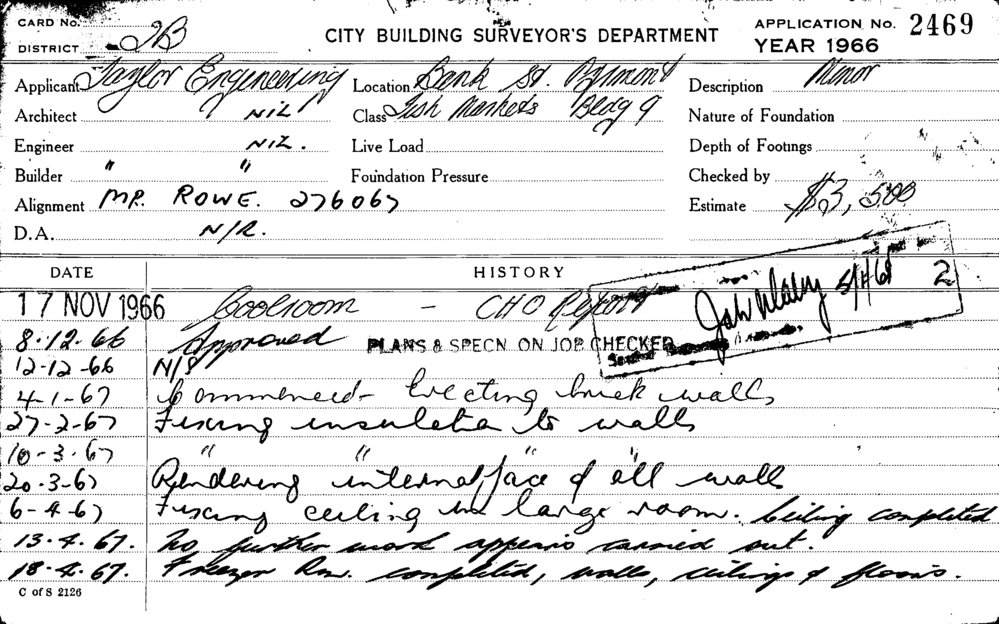 CARD No.
CITY BUILDING SURVEYOR'S DEPARTMENT
APPLICATION No. 2469
DISTRICT 2B
YEAR 1966
Applicant Taylor Engineering Location Bank St. Pyrmont Description Minor
Architect NIL Class Fish Markets Bldg 9 Nature of Foundation
Engineer NIL. Live Load Depth of Footings
Builder " " Foundation Pressure Checked by
Alignment MR. ROWE. 276067 Estimate $3,500
D.A. N/R.
DATE HISTORY
17 NOV 1966 Coolroom - CHO Report 5/4/68 2
8.12.66 Approved PLANS & SPECN ON JOB CHECKED
12-12-66 N/S
4-1-67 Commenced - Erecting brick walls
27-2-67 Fixing insulation to walls
10-3-67 " " "
20.3-67 Rendering internal face of all walls
6-4-67 Fixing ceiling in large room. Ceiling completed
13.4.67. No further work appears carried out.
18.4.67. Freezer Rm. completed, walls, ceilings & floors.
C of S 2126